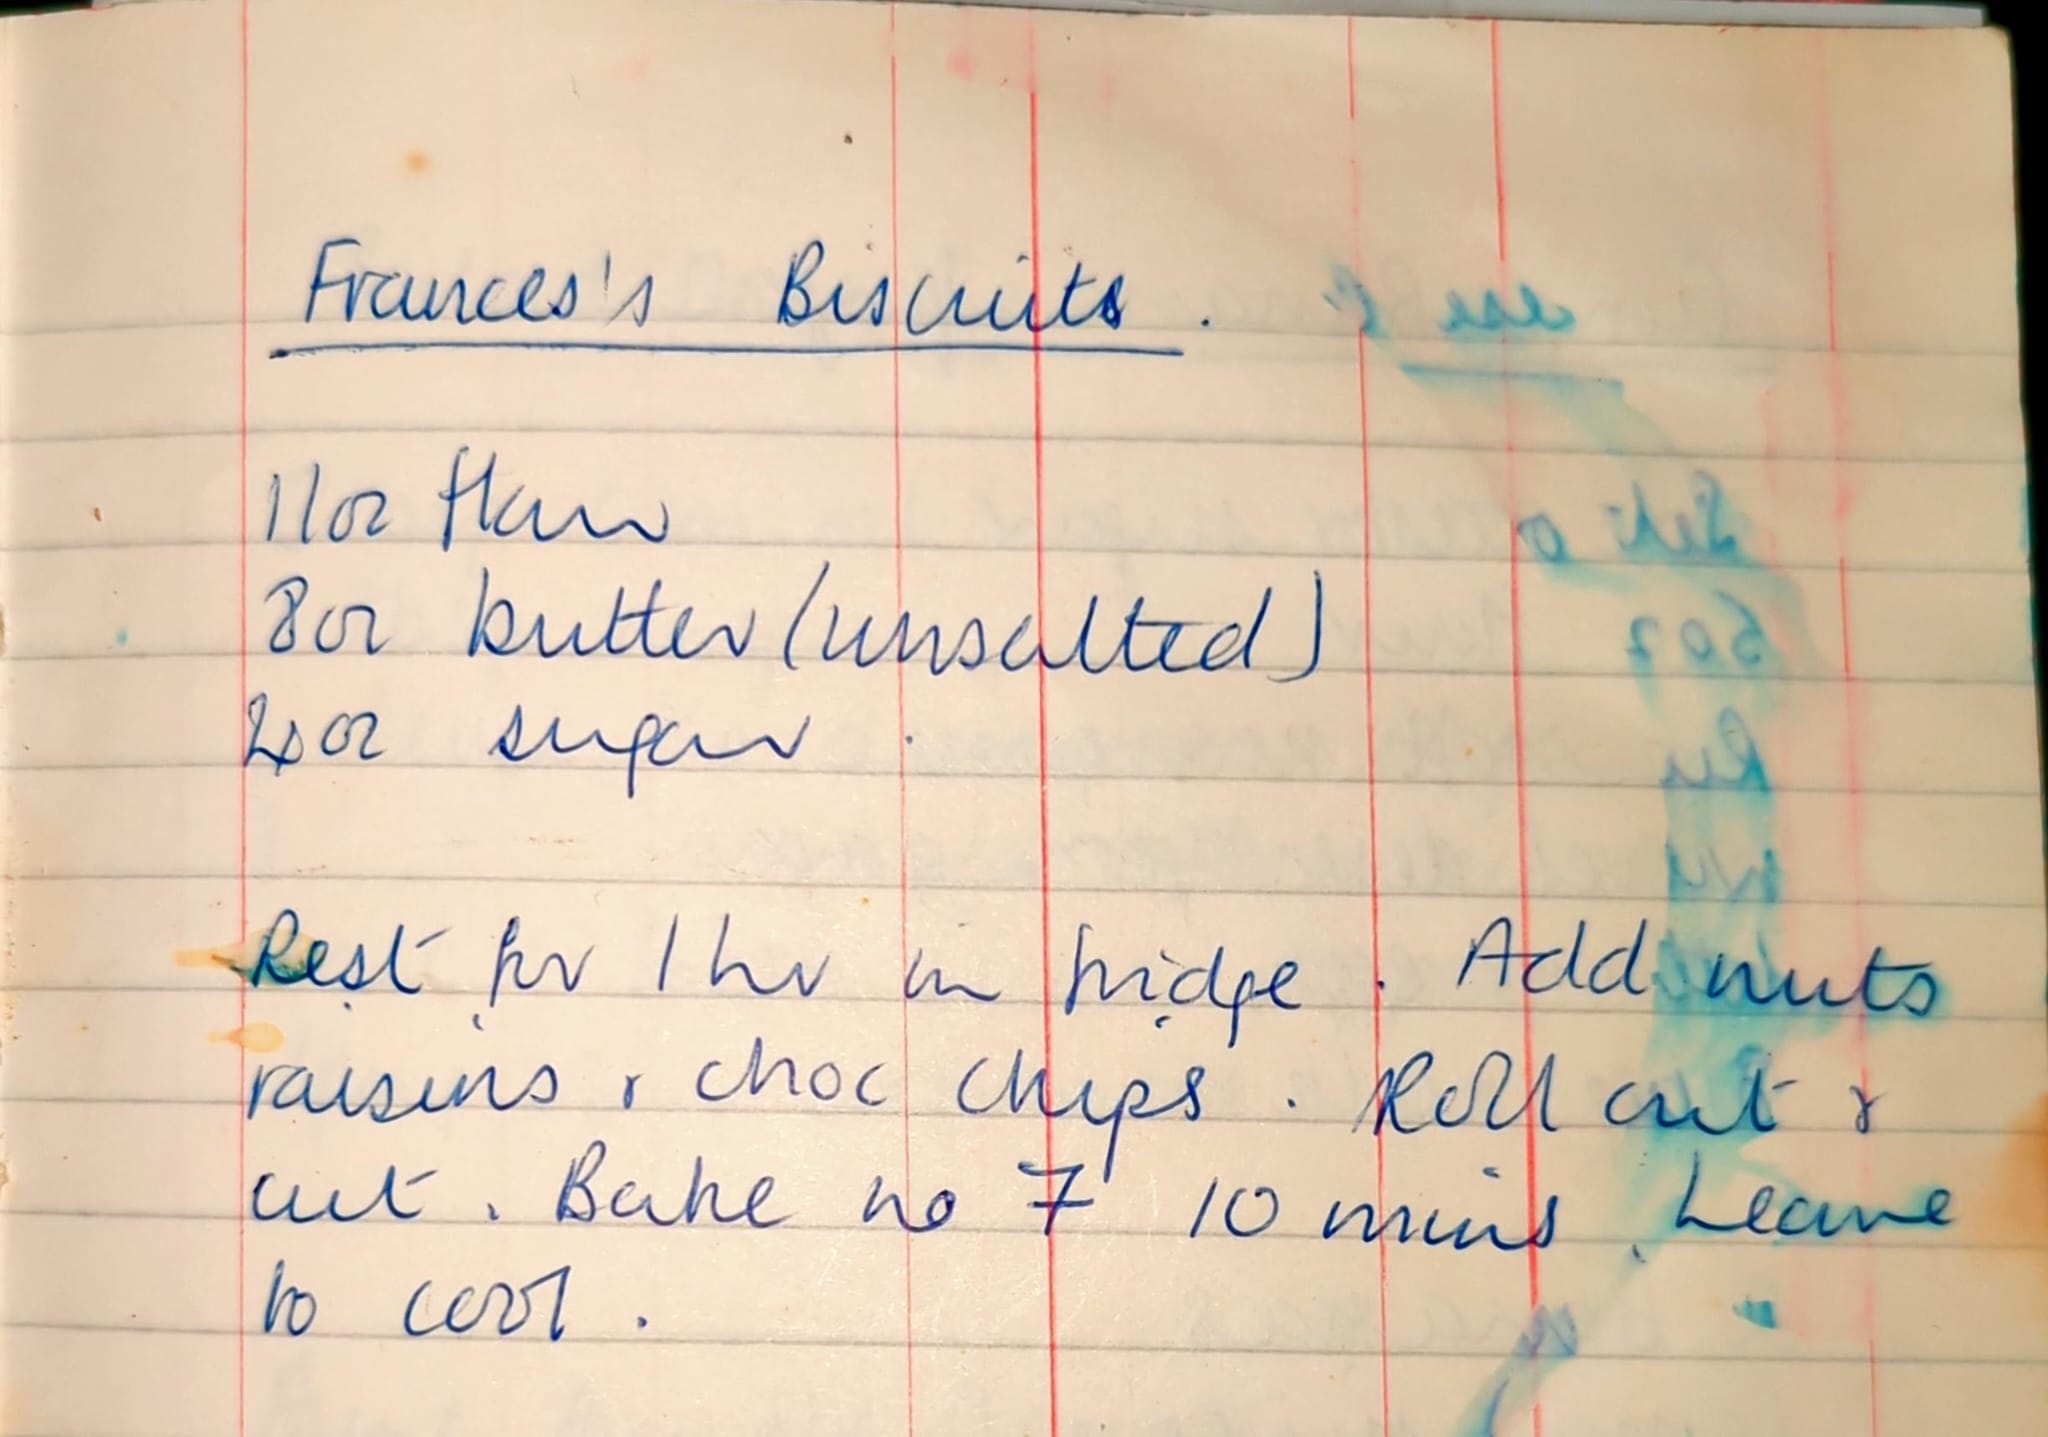 Frances's Biscuits.
11oz flour
8oz butter (unsalted)
4oz sugar
Rest for 1 hr in fridge. Add nuts
raisins & choc chips. Roll out &
cut. Bake no 7 10 mins. Leave
to cool.